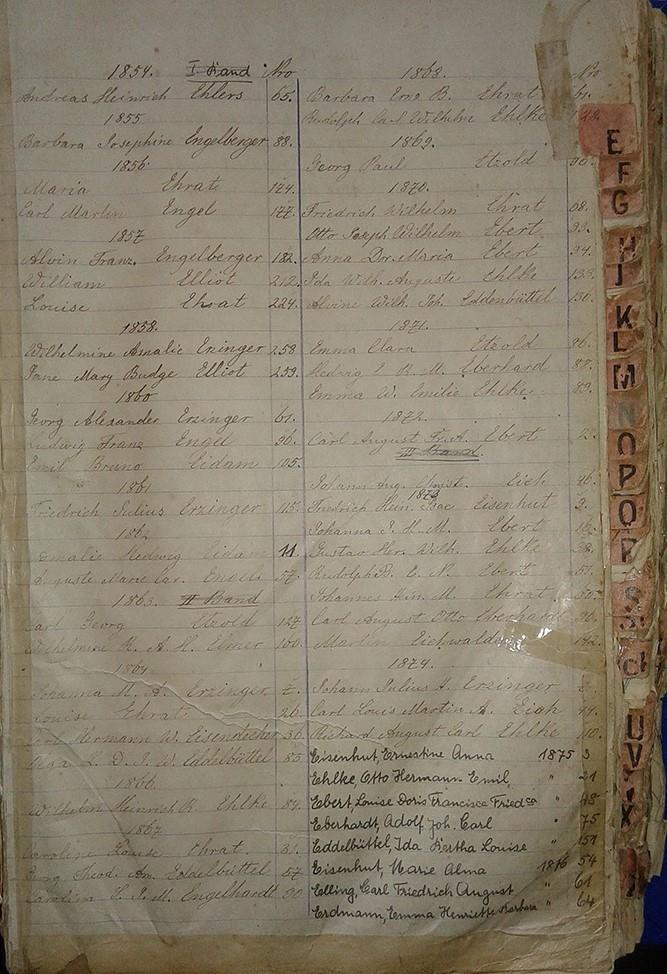 1854. I Band Nro
Andreas Heinrich Ehlers 65.
1855
Barbara Josephine Engelberger 88.
1856
Maria Ehrat 124.
Carl Martin Engel 177.
1857
Alvin Franz. Engelberger 182.
William Elliot 212.
Louise Ehrat 224.
1858.
Wilhelmine Amalie Erzinger 258
Jane Mary Budge Elliot 259.
1860
Georg Alexander Erzinger 61.
Ludwig Franz Engel 96.
Emil Bruno Eidam 105.
1861
Friedrich Julius Erzinger 115.
1862
Amalie Hedwig Eidam 11.
Auguste Marie Car. Engel 57.
1863. II Band
Carl Georg Etzold 127
Wilhelmine R. A. H. Elmer 160.
1864
Johanna M. A. Erzinger
Louise Ehrat 26.
Carl Hermann W. Eisendecher 36
Olga L. D. J. W. Eddelbüttel 85
1866.
Wilhelm Heinrich R. Ehlke 84.
1867
Caroline Louise Ehrat 31.
Georg Theod. Am. Eddelbüttel 57
Carolina E. J. M. Engelhardt 90
1868. Nro
Barbara Erne B. Ehrat
Rudolph Carl Wilhelm Ehlke
1869.
Georg Paul Etzold
1870.
Friedrich Wilhelm Ehrat
Otto Joseph Wilhelm Ebert
Anna Dor. Maria Ebert 94.
Ida Wilh. Auguste Ehlke
Alvine Wilh. Joh. Eddenbüttel
1871.
Emma Clara Etzold 86.
Hedwig E. B. M. Eberhard
Emma W. Emilie Ehlke 89.
1872.
Carl August Fr. A. Ebert
III Band.
Johann Aug. Christ. Eich 46.
1873
Friedrich Hein. Isac Eisenhut 3.
Johanna J. H. M. Ebert 16.
Gustav Her. Wilh. Ehlke 38.
Rudolph B. E. N. Ebert 51.
Johannes Hein. M. Ehrat
Carl August Otto Eberhard 96.
Martin Eichwald 142.
1874.
Johann Julius A. Erzinger
Carl Louis Martin A. Eich 44.
Richard August Carl Ehlke 110.
Eisenhut, Ernestine Anna 1875 3
Ehlke, Otto Hermann Emil, " 21
Ebert, Louise Doris Francisca Friedca " 48
Eberhardt, Adolf Joh. Carl " 75
Eddelbüttel, Ida Hertha Louise " 151
Eisenhut, Marie Alma 1876 54
Elling, Carl Friedrich August " 61
Erdmann, Emma Henriette Barbara " 64
E
F
G
H
J
K
L
M
N
O
P
Q
R
S
U
V
X